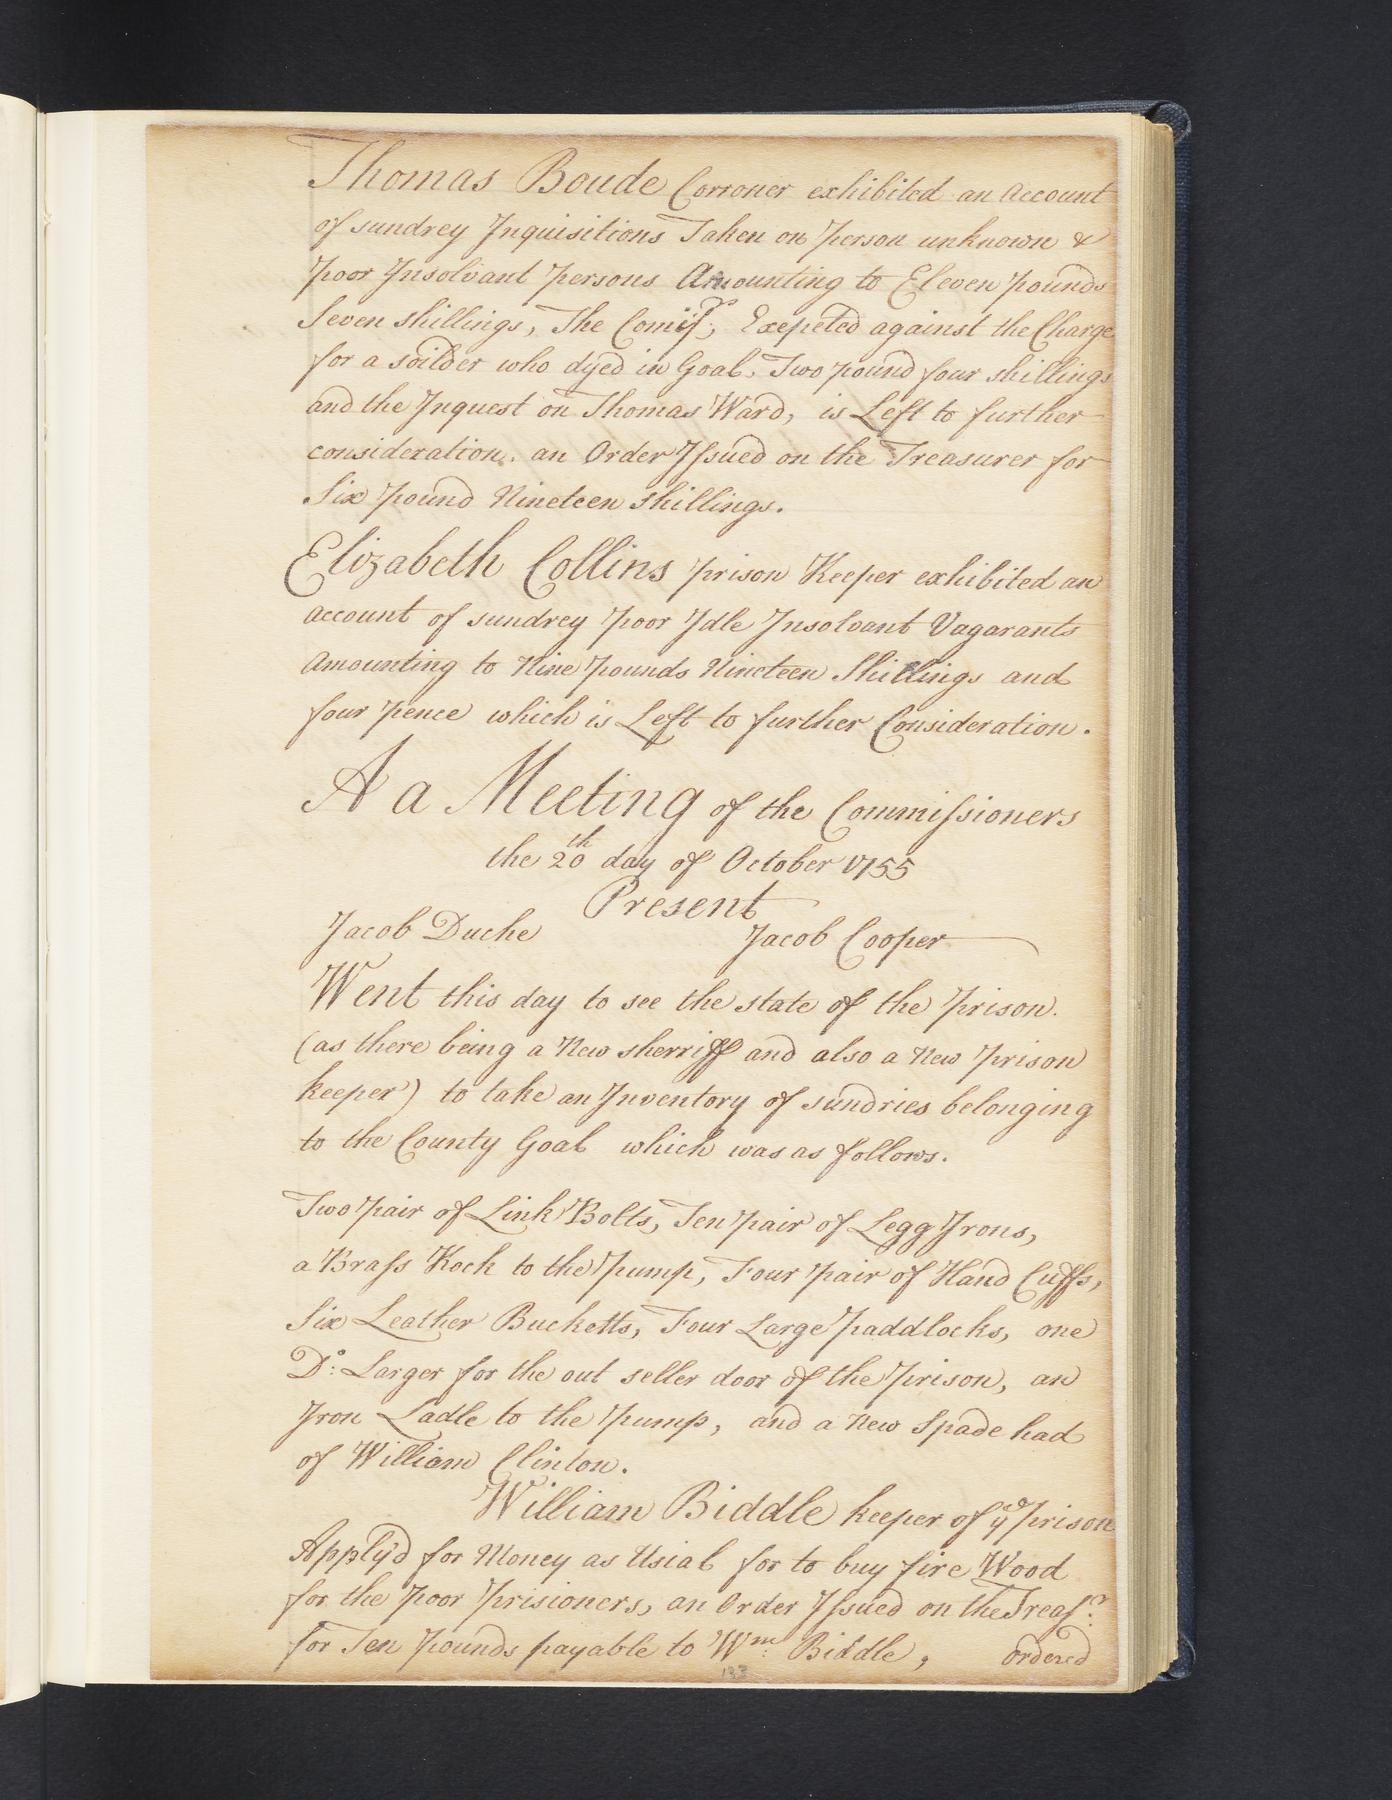 Thomas Boude Corroner exhibited an Account
of sundrey Inquisitions Taken on person unknown &
poor Insolvant persons Amounting to Eleven pounds
Seven shillings, The Comiss:rs Exepeted against the Charge
for a soilder who dyed in Goal, Two pound four shillings
and the Inquest on Thomas Ward, is Left to further
consideration. an Order Issued on the Treasurer for
Six pound Nineteen shillings.
Elizabeth Collins prison Keeper exhibited an
account of sundrey poor Idle Insolvant Vagarants
Amounting to Nine pounds Nineteen Shillings and
four pence which is Left to further Consideration.
A a Meeting of the Commissioners
the 20th day of October 1755
Present
Jacob Duche Jacob Cooper
Went this day to see the state of the prison.
(as there being a New sherriff and also a New prison
keeper) to take an Inventory of sundries belonging
to the County Goal which was as follows.
Two pair of Link Bolts, Ten pair of Legg Irons,
a Brass Kock to the pump, Four pair of Hand Cuffs,
Six Leather Bucketts, Four Large paddlocks, one
Do: Larger for the out seller door of the prison, an
Iron Ladle to the pump, and a New Spade had
of William Clinton.
William Biddle keeper of ye prison
Apply'd for Money as Usial for to buy fire Wood
for the poor prisioners, an Order Issued on the Treas:r
for Ten pounds payable to Wm: Biddle, ordered
133